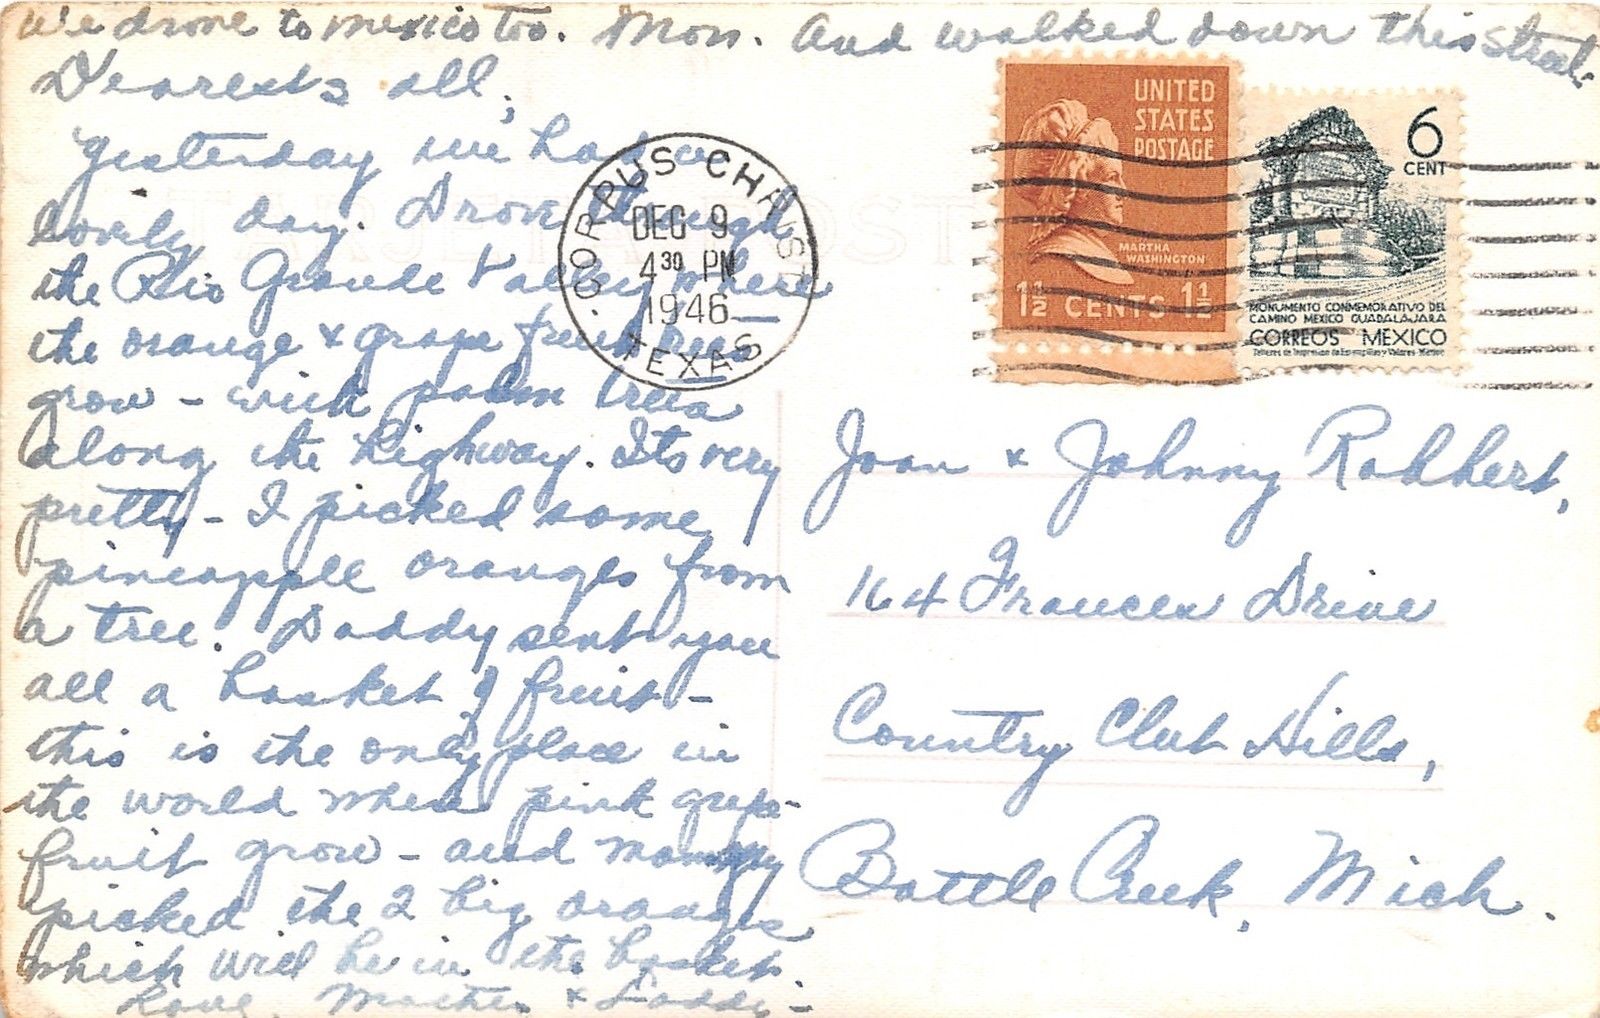 We drove to Mexico too. Mon. And walked down this street.
Dearests all,
Yesterday we had a
lovely day. Drove through
the Rio Grande Valley where
the orange & grape fruit trees
grow - with palm trees
along the highway. Its very
pretty - I picked some
pineapple oranges from
a tree. Daddy sent you
all a basket of fruit -
this is the only place in
the world where pink grape-
fruit grow - and mommy
picked the 2 big oranges
which will be in the basket.
Love, Mother & Daddy -
TARJETA POST
CORPUS CHRISTI
DEC 9
4 30 PM
1946
TEXAS
UNITED
STATES
POSTAGE
MARTHA
WASHINGTON
1½ CENTS 1½
6
CENT
MONUMENTO CONMEMORATIVO DEL
CAMINO MEXICO GUADALAJARA
CORREOS MEXICO
Talleres de Impresion de Estampillas y Valores-Mexico
Joan & Johnny Robbert,
164 Frances Drive
Country Club Hills,
Battle Creek, Mich.